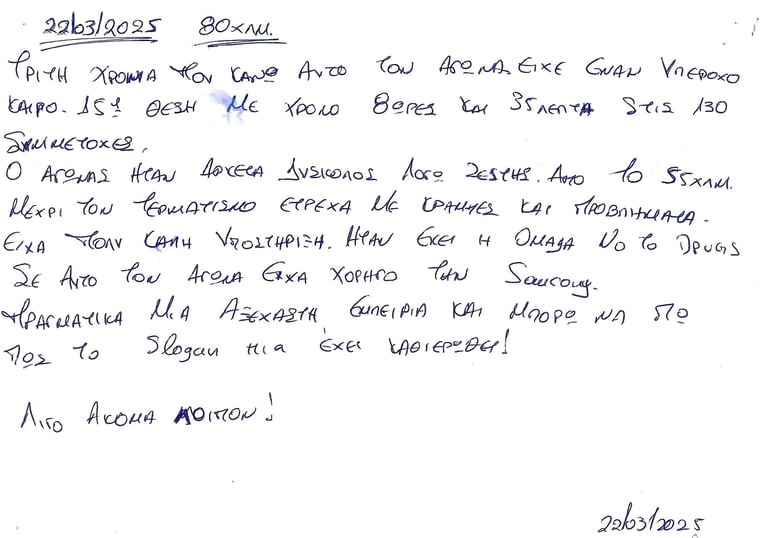 22/03/2025 80ΧΛΜ.
ΤΡΙΤΗ ΧΡΟΝΙΑ ΠΟΥ ΚΑΝΩ ΑΥΤΟ ΤΟΝ ΑΓΩΝΑ. ΕΙΧΕ ΕΝΑΝ ΥΠΕΡΟΧΟ
ΚΑΙΡΟ. 15η ΘΕΣΗ ΜΕ ΧΡΟΝΟ 8ΩΡΕΣ ΚΑΙ 35ΛΕΠΤΑ ΣΤΙΣ 130
ΣΥΜΜΕΤΟΧΕΣ.
Ο ΑΓΩΝΑΣ ΗΤΑΝ ΑΡΚΕΤΑ ΔΥΣΚΟΛΟΣ ΛΟΓΩ ΖΕΣΤΗΣ. ΑΠΟ ΤΟ 55ΧΛΜ.
ΜΕΧΡΙ ΤΟΝ ΤΕΡΜΑΤΙΣΜΟ ΕΤΡΕΧΑ ΜΕ ΚΡΑΜΠΕΣ ΚΑΙ ΠΡΟΒΛΗΜΑΤΑ.
ΕΙΧΑ ΠΟΛΥ ΚΑΛΗ ΥΠΟΣΤΗΡΙΞΗ. ΗΤΑΝ ΕΚΕΙ Η ΟΜΑΔΑ NO TO DRUGS
ΣΕ ΑΥΤΟ ΤΟΝ ΑΓΩΝΑ ΕΙΧΑ ΧΟΡΗΓΟ ΤΗΝ Saucony.
ΠΡΑΓΜΑΤΙΚΑ ΜΙΑ ΑΞΕΧΑΣΤΗ ΕΜΠΕΙΡΙΑ ΚΑΙ ΜΠΟΡΩ ΝΑ ΠΩ
ΠΩΣ ΤΟ Slogan ΠΙΑ ΈΧΕΙ ΚΑΘΙΕΡΩΘΕΙ!
ΛΙΓΟ ΑΚΟΜΑ ΛΟΙΠΟΝ!
22/03/2025